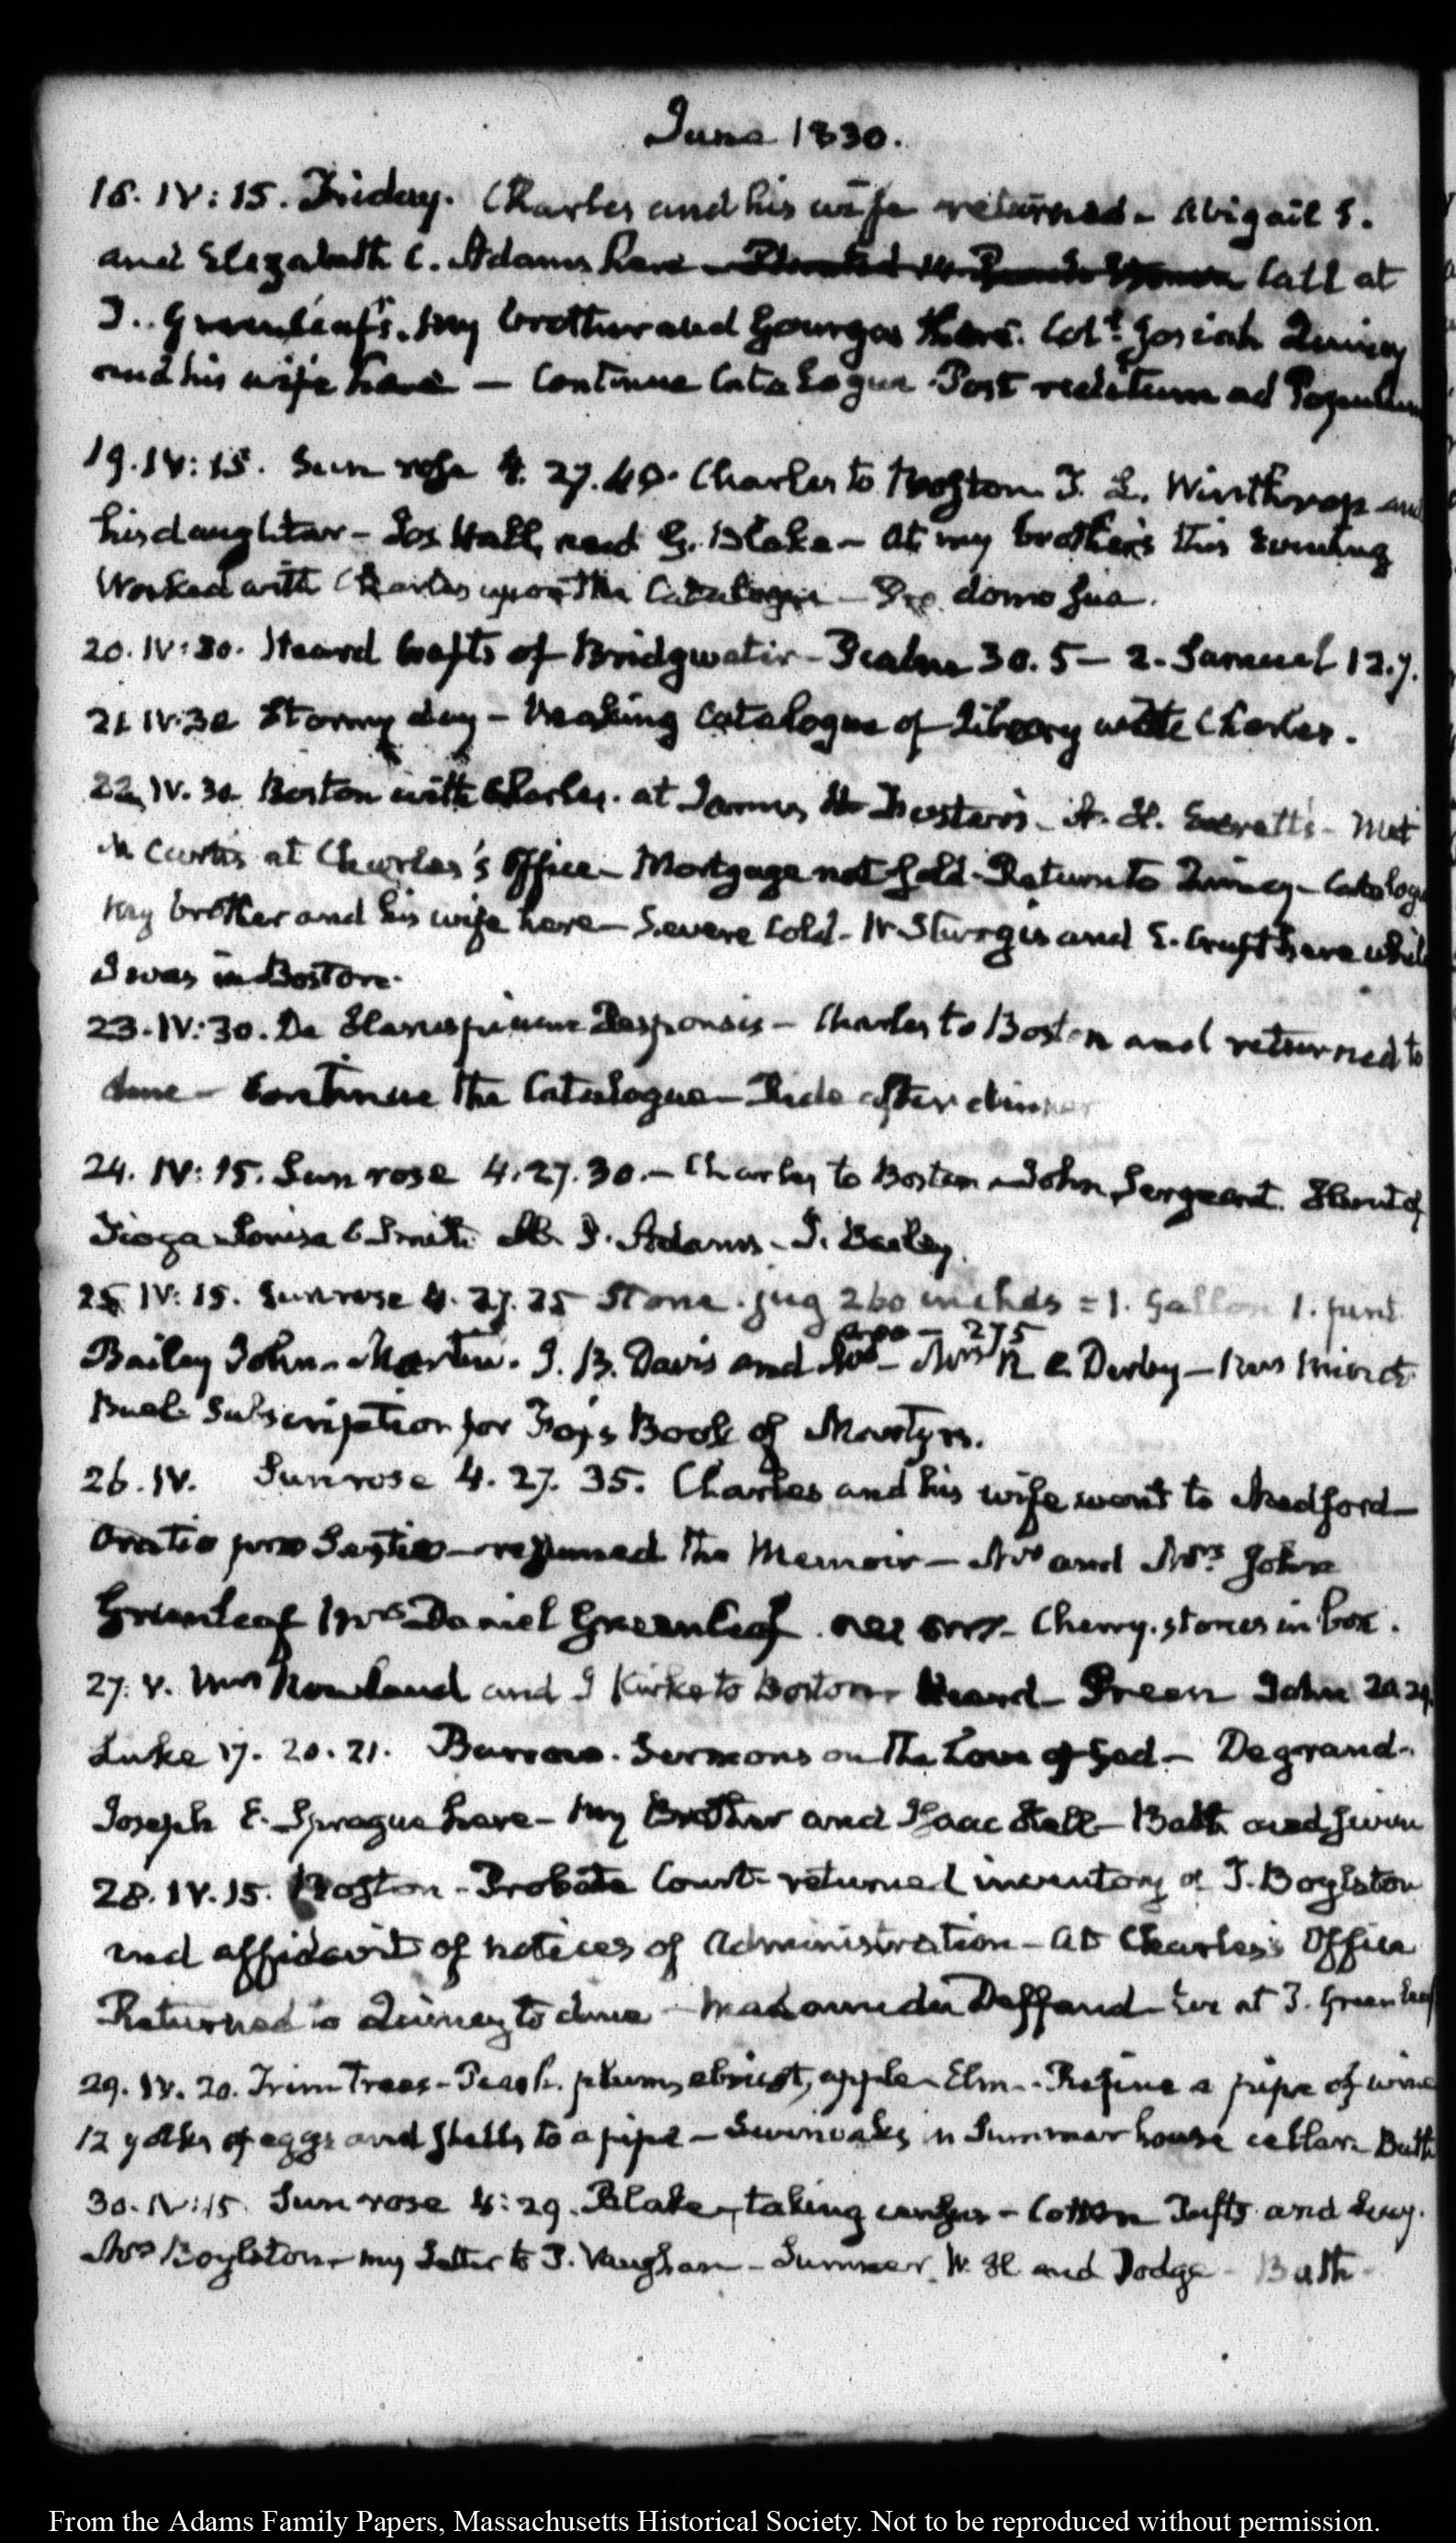 June 1830.
18. IV: 15. Friday. Charles and his wife returned - Abigail S.
and Elizabeth C. Adams here - Call at
T. Greenleaf's. My brother and Gourgas there. Col.t Josiah Quincy
and his wife here — Continue Catalogue. Post reditum ad Populum
19. IV: 15. Sun rose 4. 27. 40. Charles to Boston T. L. Winthrop and
his daughter - Jos Hall, and G. Blake - At my brother's this evening
Worked with Charles upon the Catalogue - Pro domo sua.
20. IV: 30. Heard Crafts of Bridgwater - Psalm 30. 5 - 2. Samuel 12. 7.
21 IV: 30 Stormy day - Making Catalogue of Library with Charles.
22. IV. 30. Boston with Charles. at James H Foster's - A. H. Everett's - Met
Mr Curtis at Charles's Office - Mortgage not sold - Return to Quincy - Catalogue
My brother and his wife here - Severe Cold - Mr Sturgis and E. Cruft here while
I was in Boston.
23. IV: 30. De Haruspicum Responsis - Charles to Boston and returned to
dine - Continue the Catalogue - Ride after dinner
24. IV: 15. Sun rose 4. 27. 30. - Charles to Boston - John Sergeant. of
Tioga Louisa C Smith J. Adams - J. Bailey.
25 IV: 15. Sun rose 4. 27. 25 Stone jug 260 inches = 1. Gallon 1. pint
275
Bailey John - Martin. I. P. Davis and Mrs - Mrs R C Derby - Mrs Minot
Buel Subscription for Fox's Book of Martyrs.
26. IV. Sun rose 4. 27. 35. Charles and his wife went to Medford -
Oratio pro Sextio - resumed the Memoir - Mr and Mrs John
Greenleaf Mrs Daniel Greenleaf. Cherry. stones in box.
27. V. Mrs Nowland and J Kirke to Boston - Heard - Green John 20. 29.
Luke 17. 20. 21. Barrow. Sermons on the Love of God - Degrand -
Joseph E. Sprague here - My Brother and Isaac Hull - Bath and swim
28. IV. 15. Boston - Probate Court - returned inventory of T. Boylston
and affidavit of notices of Administration - At Charles's Office
Returned to Quincy to dine - Madame du Deffand - Eve at T. Greenleaf
29. IV. 20. Trim Trees - Peach. plum, apricot, apple - Elm - Refine a pipe of wine
12 yolks of eggs and shells to a pipe - in Summer house cellar - Bath
30. IV: 15 Sun rose 4: 29. Blake, taking census - Cotton Tufts and Lucy.
Mrs Boylston - my Letter to J. Vaughan - Sumner. W. H. and Dodge - Bath -
From the Adams Family Papers, Massachusetts Historical Society. Not to be reproduced without permission.